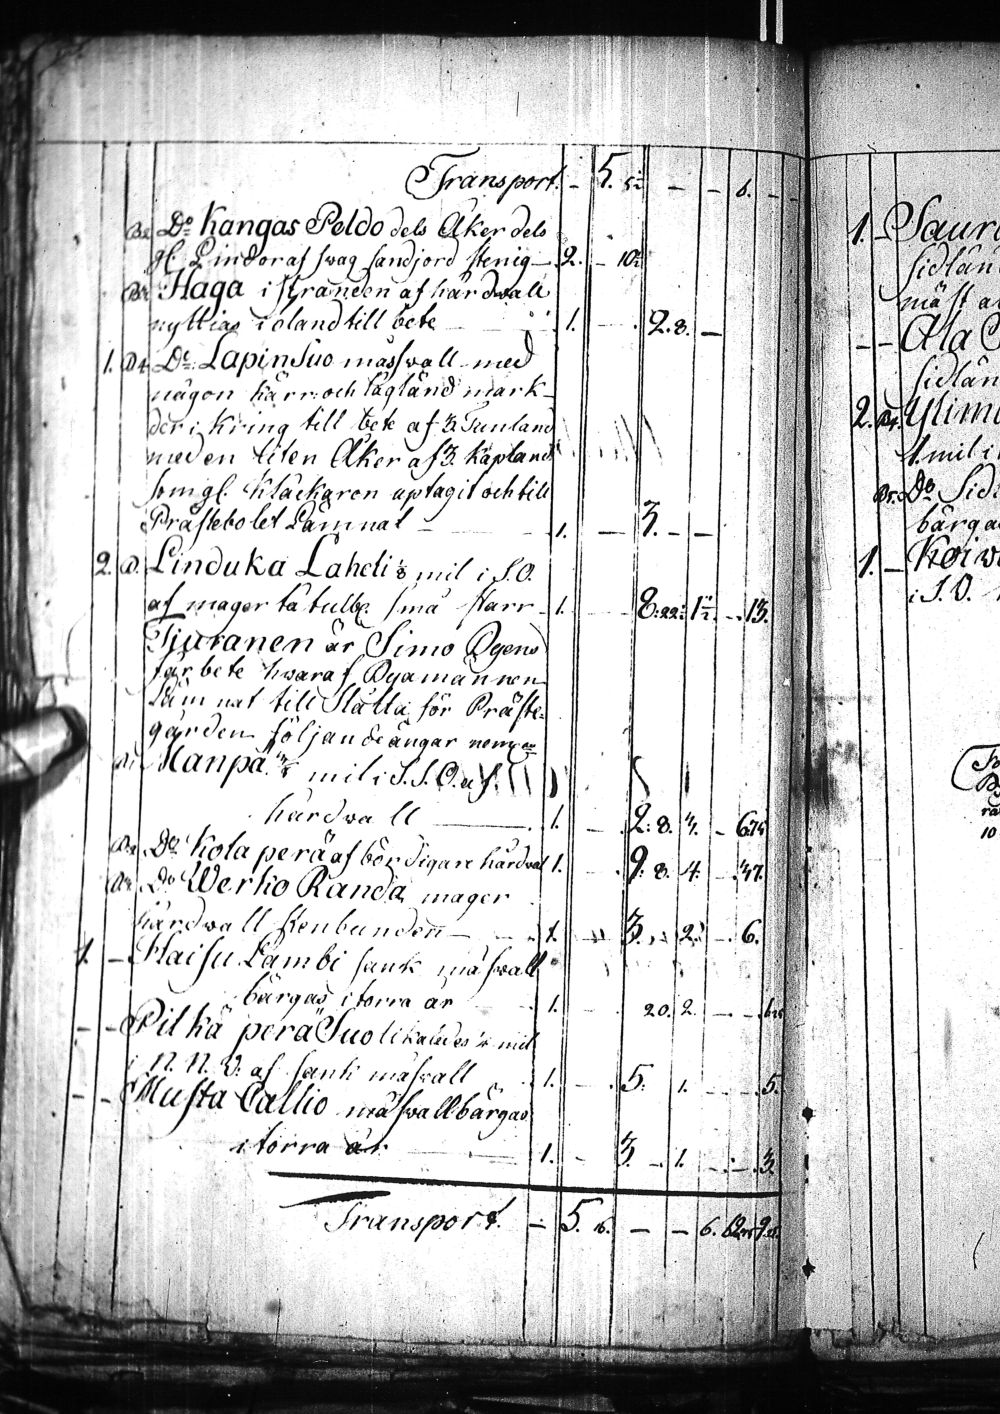 Transport. – 5. 5½ – – 6. –
B2 Do Kangas Peldo dels Åker dels
gl. Lindor af swag sandjord stenig – 2. – 10½
B3 Haga i stranden af hårdwall
nyttias i oland till bete 1. 2. 8. –
1. D4 Do Lapin Suo måswall med
någon kärr och lågländ mark
der i kring till bete af 3. Tunland
med en liten Åker af 3. Kapland
som gl. Klåckaren uptagit och till
Prästebolet Lämnat – 1. – 3. – –
2. D. Linduka Laheti ⅛ mil i S.O.
af mager tåtulle. små starr 1. 8. 22. 1½ 13.
Tjuranen är Simo Byens
får bete hwaraf Byamännen
Lämnat till Slåtta för Präste-
gården följande ängar
Manpä mil i S.S.O. af
hårdwall 1. – 2. 8. – 675
Do Kola perä af bördigare hårdwal 1. 9. 8. 4. 47.
Do Werko Randa mager
hårdwall stenbunden – 1. 3. 2. 6.
1. – Haisu Lambi sank måswall
bärgas i torra år 1. 20. 2.
– – Pilkä perä Suo likaledes mil
i N. N. V. af sank måswall 1. 5. 1. 5.
– – Musta Callio måswall bärgas
i torra år 1. – 3. – 1. 3.
Transport. – 5. 16. – – 6.
1. –
sidlän
mäst a
– – Ala
sidlän
2. B4. Ylim
1. mil i
B5. Do Sid
bärga
1. – Koiw
i S.O.
10